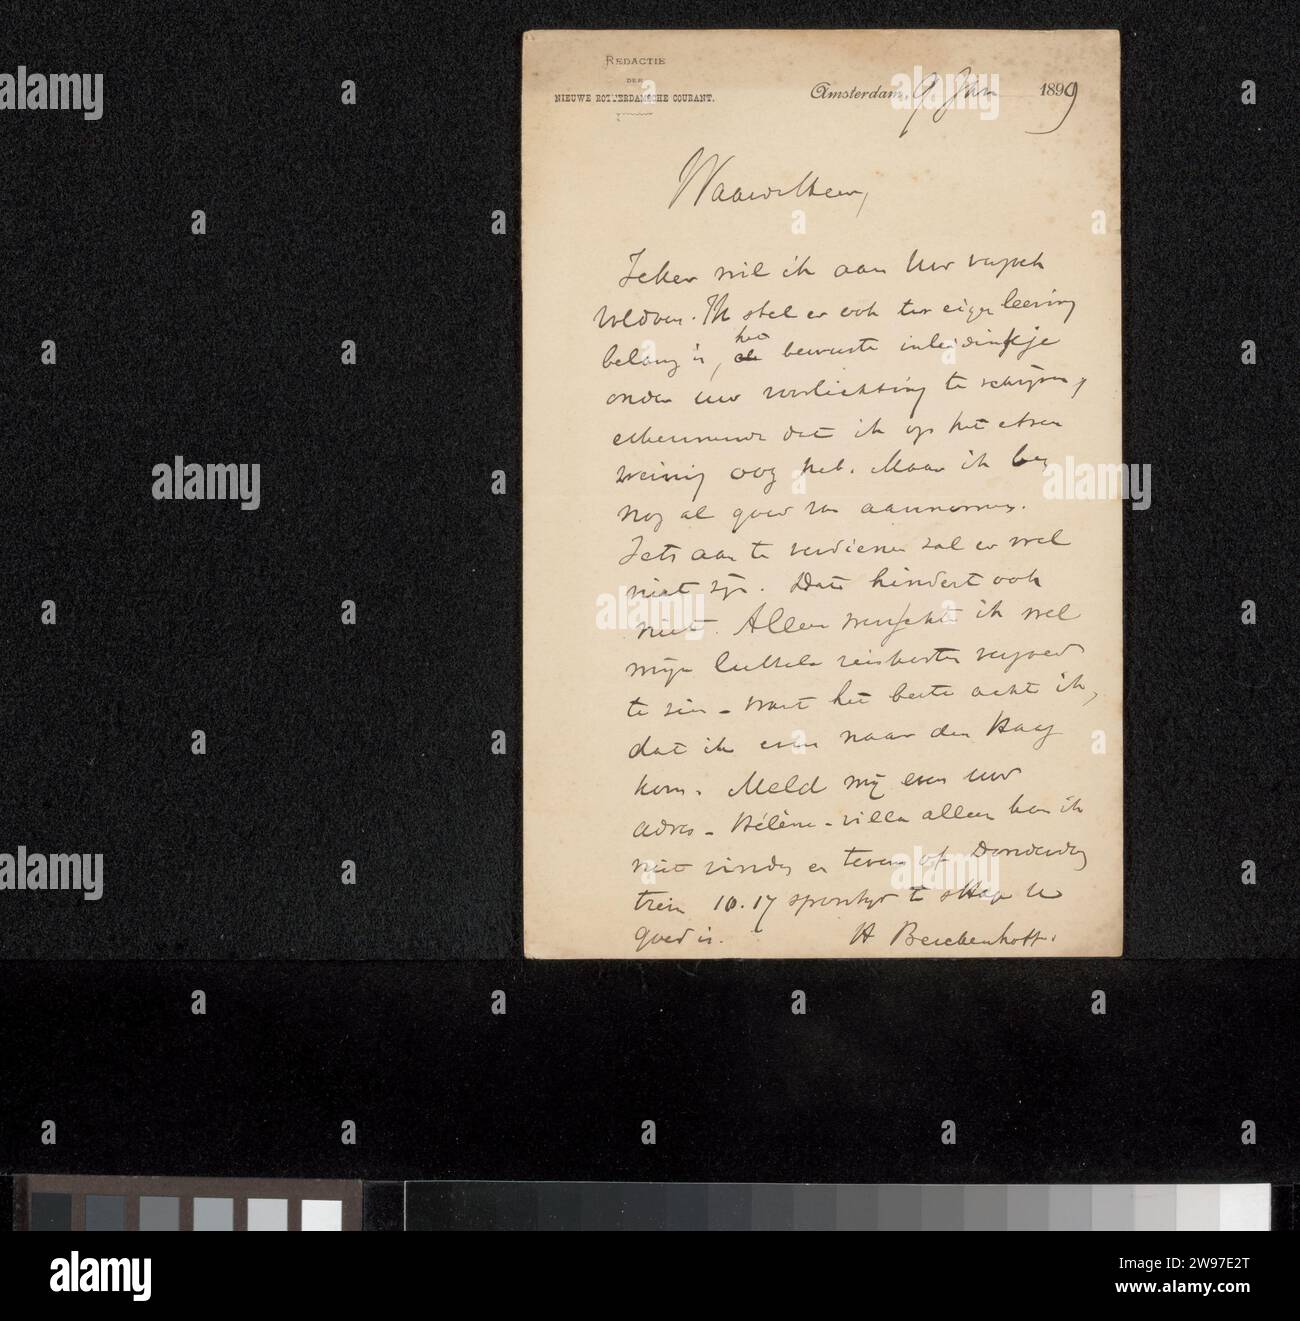 REDACTIE
DER
NIEUWE ROTTERDAMSCHE COURANT.
Amsterdam, 9 Jan 1899
Waarde Heer,
Zeker wil ik aan Uw verzoek
voldoen. Ik stel er ook ter eigen leering
belang in, het bewuste inleidinkje
onder uw voorlichting te schrijven,
erkennende dat ik op het etsen
weinig oog heb. Maar ik ben
nog al goed van aannemen.
Iets aan te verdienen zal er wel
niet zijn. Dat hindert ook
niet. Alleen wenschte ik wel
mijn luttele reiskosten vergoed
te zien - want het beste acht ik,
dat ik even naar den Haag
kom. Meld mij even uw
adres - Hélène-villa alleen kan ik
niet vinden en tevens of Donderdag
trein 10.17 te sHage U
goed is. H Berckenhoff.
alamy
Image ID: 2W97E2T
www.alamy.com